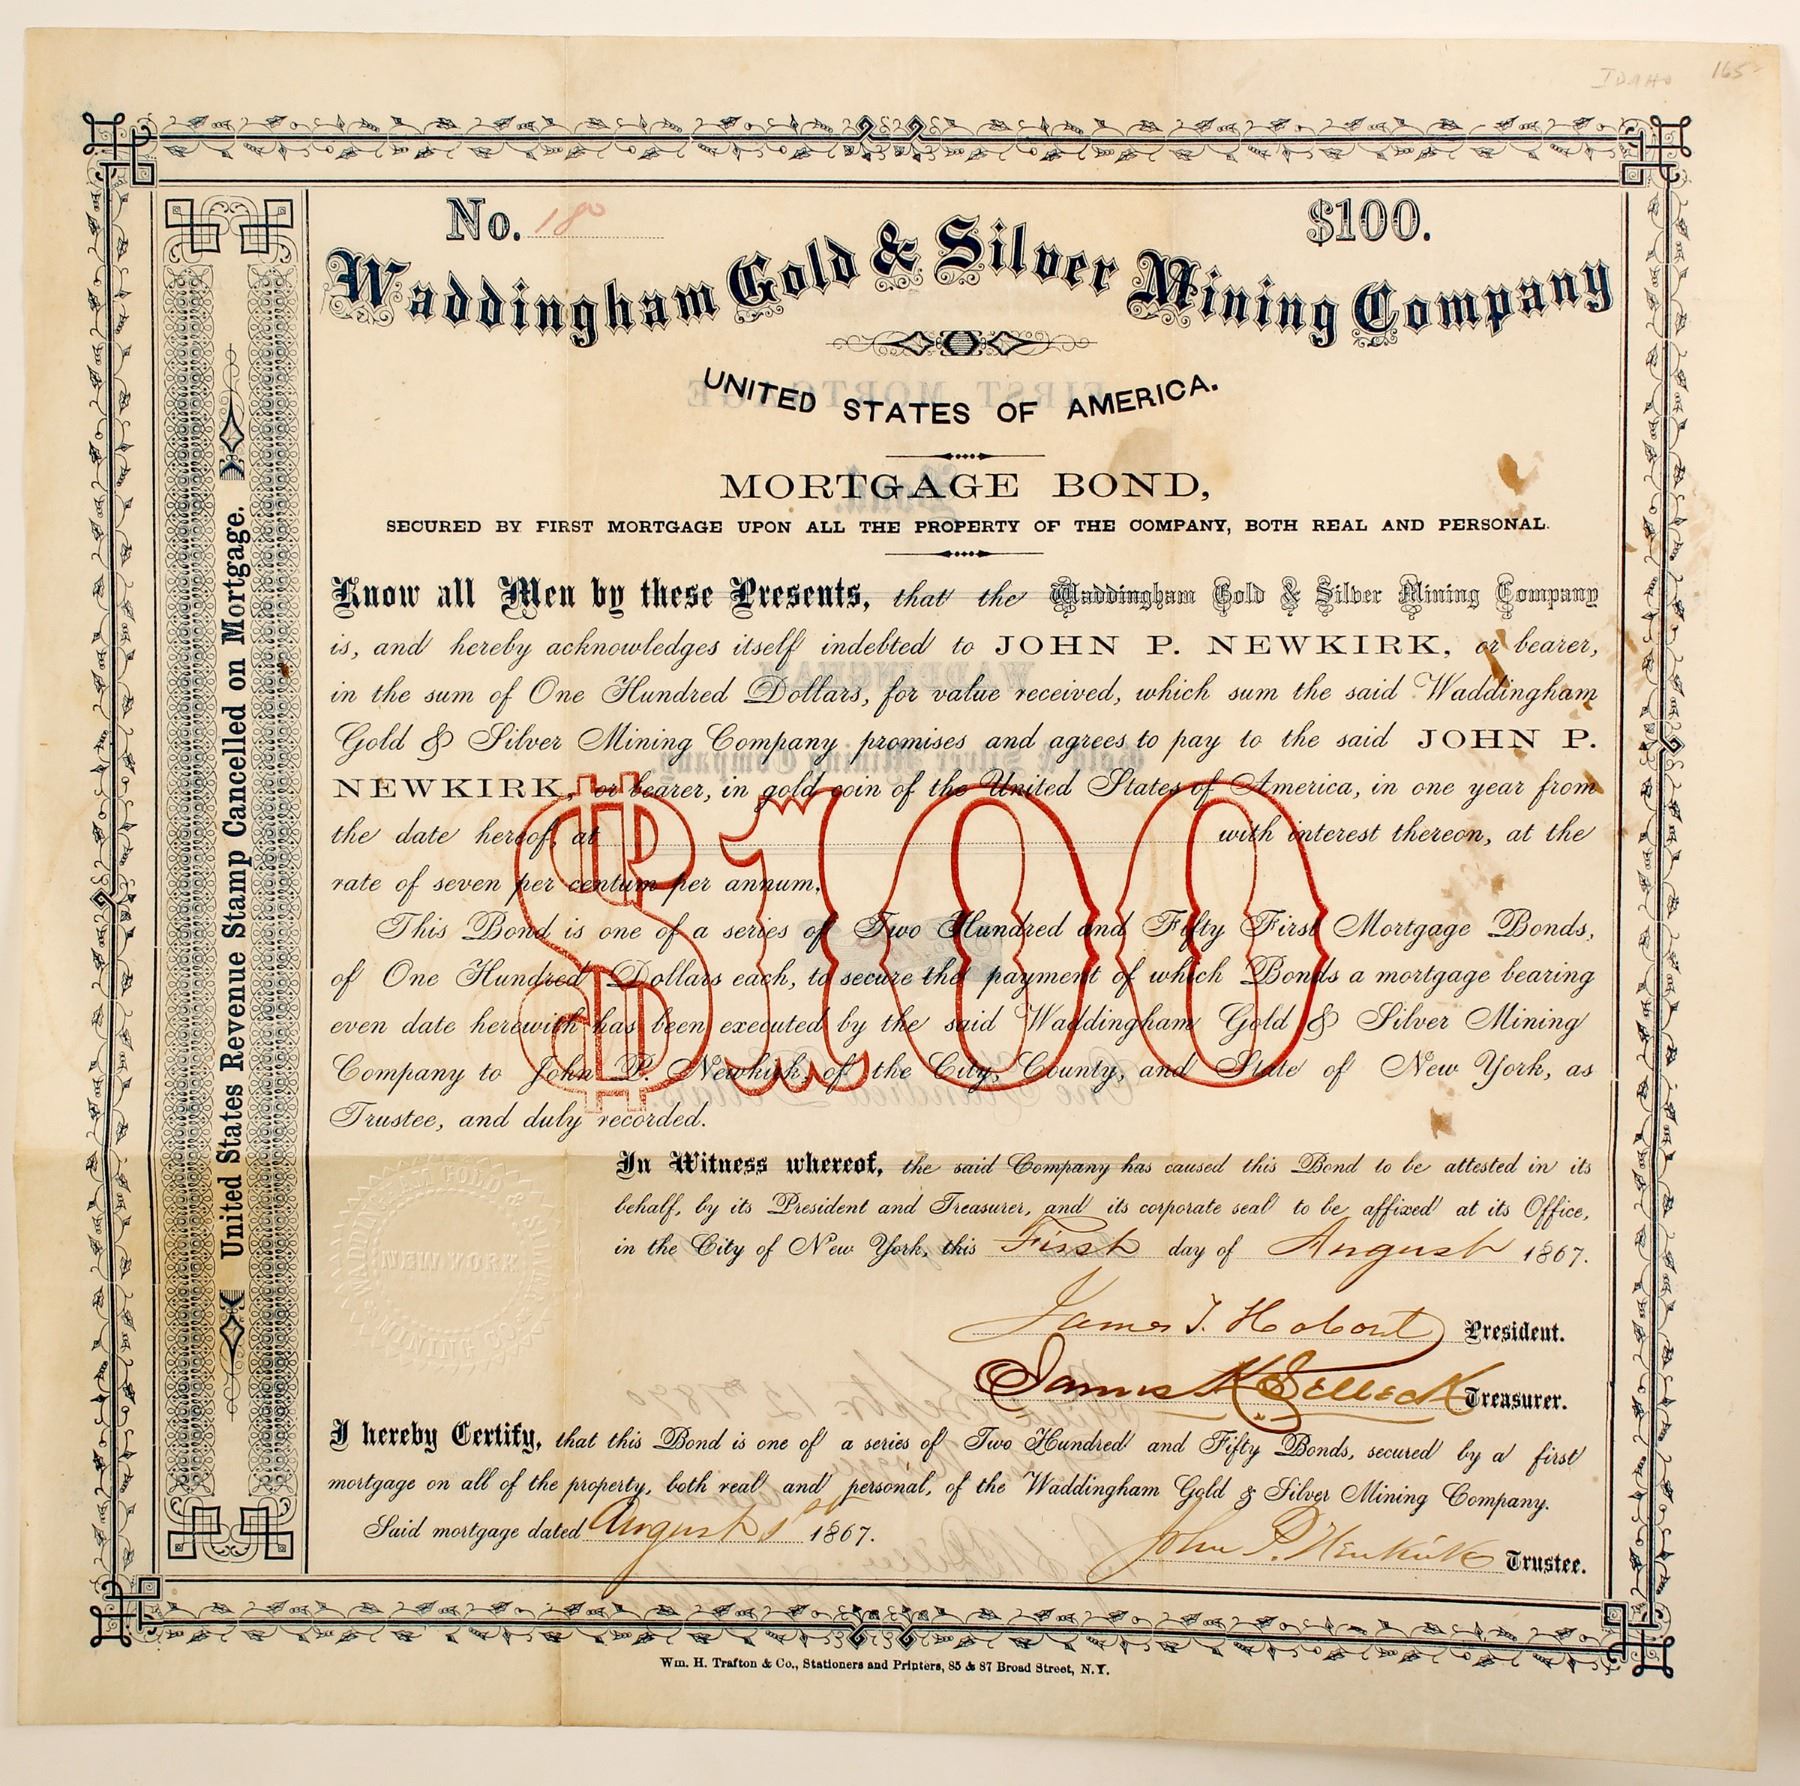 IDAHO 165-
No. 180 $100.
Waddingham Gold & Silver Mining Company
UNITED STATES OF AMERICA.
MORTGAGE BOND,
SECURED BY FIRST MORTGAGE UPON ALL THE PROPERTY OF THE COMPANY, BOTH REAL AND PERSONAL.
Know all Men by these Presents, that the Waddingham Gold & Silver Mining Company
is, and hereby acknowledges itself indebted to JOHN P. NEWKIRK, or bearer,
in the sum of One Hundred Dollars, for value received, which sum the said Waddingham
Gold & Silver Mining Company promises and agrees to pay to the said JOHN P.
NEWKIRK, or bearer, in gold coin of the United States of America, in one year from
the date hereof, at with interest thereon, at the
rate of seven per centum per annum.
This Bond is one of a series of Two Hundred and Fifty First Mortgage Bonds,
of One Hundred Dollars each, to secure the payment of which Bonds a mortgage bearing
even date herewith has been executed by the said Waddingham Gold & Silver Mining
Company to John P. Newkirk, of the City, County, and State of New York, as
Trustee, and duly recorded.
$100
In Witness whereof, the said Company has caused this Bond to be attested in its
behalf, by its President and Treasurer, and its corporate seal to be affixed at its Office,
in the City of New York, this First day of August 1867.
James T. Hobart President.
James K Selleck Treasurer.
I hereby Certify, that this Bond is one of a series of Two Hundred and Fifty Bonds, secured by a first
mortgage on all of the property, both real and personal, of the Waddingham Gold & Silver Mining Company.
Said mortgage dated August 1st 1867.
John P. Newkirk Trustee.
United States Revenue Stamp Cancelled on Mortgage.
WADDINGHAM GOLD & SILVER MINING CO.
NEW YORK
Wm. H. Trafton & Co., Stationers and Printers, 85 & 87 Broad Street, N.Y.